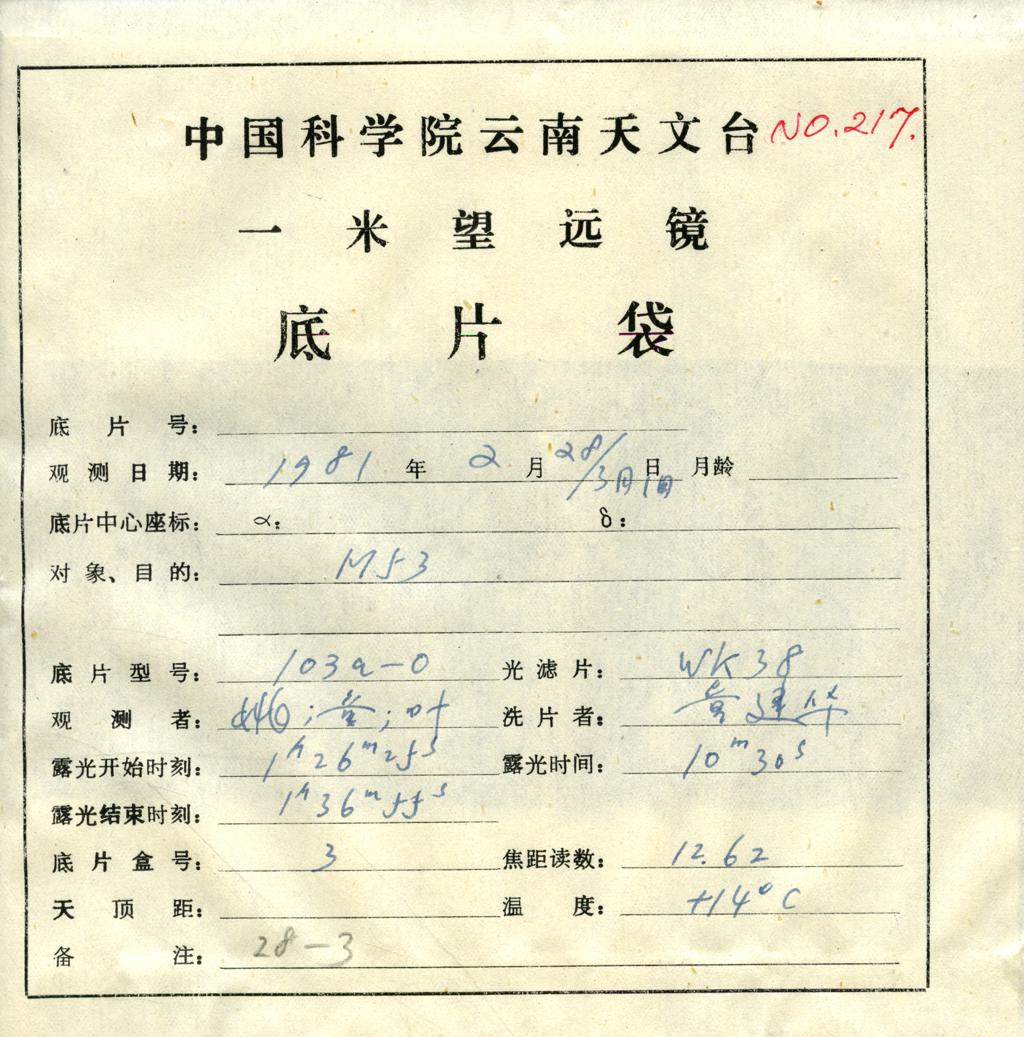 中国科学院云南天文台 NO.217.
一米望远镜
底片袋
底片号：
观测日期： 1981 年 2 月 28/3月1日 日 月龄
底片中心座标： α： δ：
对象、目的： M53
底片型号： 103a-O 光滤片： WK38
观测者： ; 黄; 叶 洗片者： 黄建华
露光开始时刻： 1h26m25s 露光时间： 10m30s
露光结束时刻： 1h36m55s
底片盒号： 3 焦距读数： 12.62
天顶距： 温度： +14°C
备注： 28-3